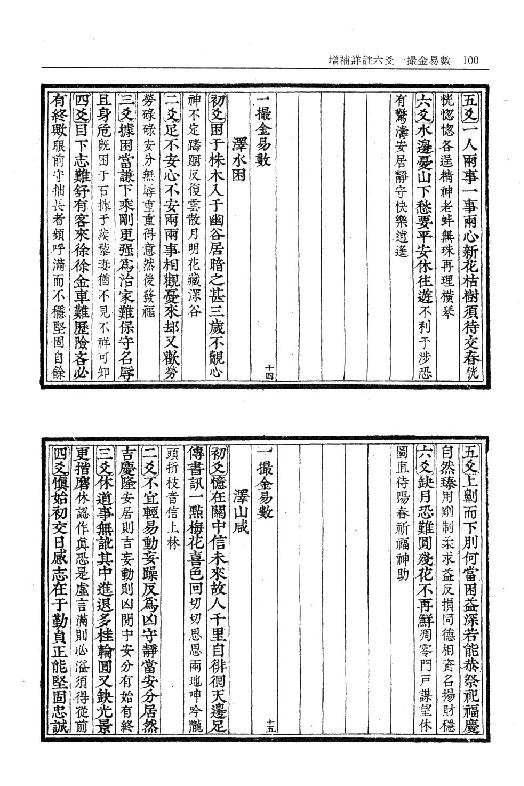 增補詳註六爻　一撮金易數　100
五爻一人兩事一事兩心新花枯樹須待交春恍
恍惚惚各逞精神老蚌無珠再理橫琴
六爻水邊憂山下愁要平安休往遊不利于涉恐
有驚濤安居靜守快樂逍遙
一撮金易數
十四
澤水困
初爻困于株木入于幽谷居暗之甚三歲不覿心
神不定躊躇反復雲散月明花藏深谷
二爻足不安心不安兩兩事相觀憂來却又歡勞
勞碌碌安分無辱重重得意然後發福
三爻據困當謙下乘剛更强爲治家難保守名辱
且身危旣困于石據于蒺藜遜猶不見不祥可知
四爻目下志難舒有客來徐徐金車難歷險吝必
有終暾眼前守拙長者頻呼滿而不穩堅固自餘
五爻上劓而下刖何當困益深若能恭祭祀福慶
自然臻用剛制柔求益反損同德相資名揚財穩
六爻缺月恐難圓殘花不再鮮凋零門戶謀望休
圖直待陽春祈福神助
一撮金易數
十五
澤山咸
初爻憶在關中信未來故人千里自徘徊天邊足
傳書訊一點梅花喜色回切切思思兩地呻吟隴
頭折枝音信上林
二爻不宜輕易動妄躁反為凶守靜當安分居然
吉慶隆安居則吉妄動則凶閒中安分有始有終
三爻休道事無訛其中進退多桂輪圓又缺光景
更揩磨休認作真恐是虛言滿則必溢須得從前
四爻愼始初交日感志在于勤貞正能堅固忠誠